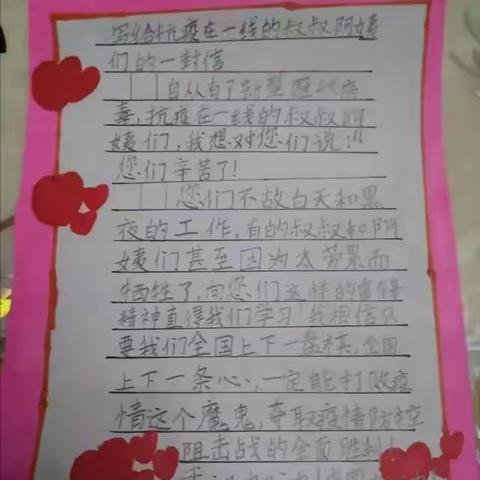 写给抗疫在一线的叔叔阿姨
们的一封信
自从有了新型冠状病
毒,抗疫在一线的叔叔阿
姨们,我想对您们说:"
您们辛苦了!
您们不故白天和黑
夜的工作,有的叔叔和阿
姨们甚至因为太劳累而
牺牲了,向您们这样的
精神直得我们学习!我相信只
要我们全国上下一盘棋,全国
上下一条心,一定能打败疫
情这个魔鬼,夺取疫情防控
阻击战的全面胜利!